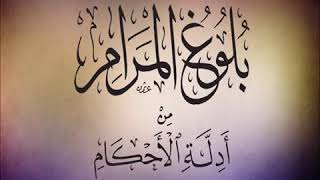 بُلُوغُ المَرَامِ
مِنْ
أَدِلَّةِ ٱلْأَحْكَامِ